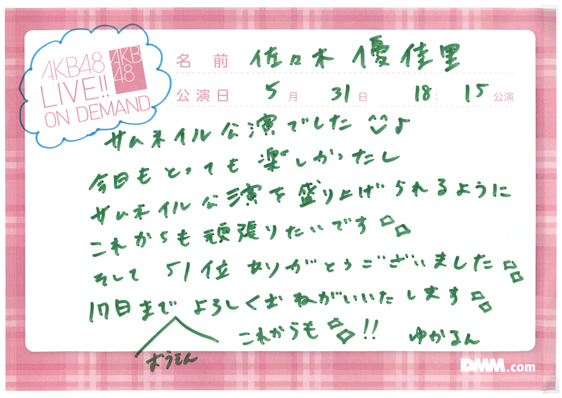 AKB48
LIVE!!
ON DEMAND
AKB
48
名前 佐々木 優佳里
公演日 5月 31日 18:15公演
サムネイル公演でした
今日もとっても楽しかったし
サムネイル公演を盛り上げられるように
これからも頑張りたいです
そして 51位 ありがとうございました
17日まで よろしくおねがいいたします
おうえん
これからも !! ゆかるん
DMM.com